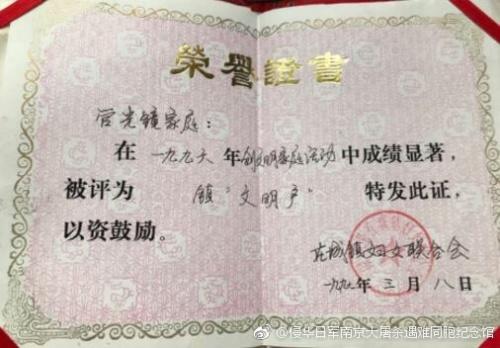 榮譽證書
官光镜家庭：
在一九九六年创文明家庭活动中成绩显著，
被评为镇“文明户”特发此证，
以资鼓励。
城镇妇女联合会
一九九 年三月八日
@侵华日军南京大屠杀遇难同胞纪念馆